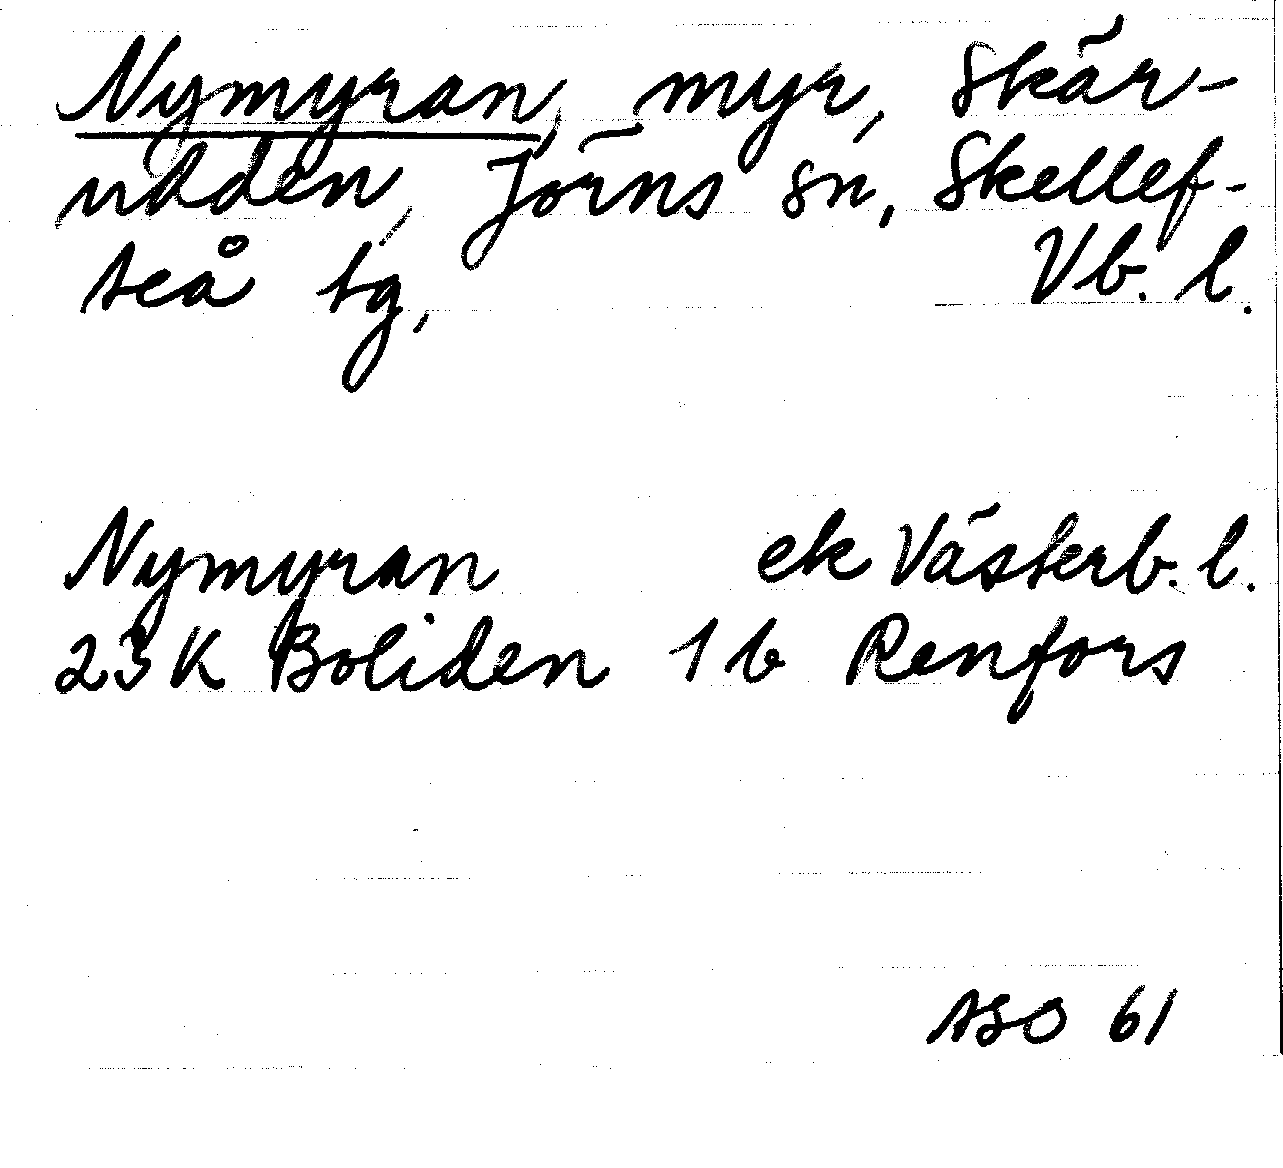 Nymyran, myr, Skär-
udden, Jörns sn, Skellef-
teå tg, Vb. l.
Nymyran ek Västerb. l.
23K Boliden 1b Renfors
ASO 61